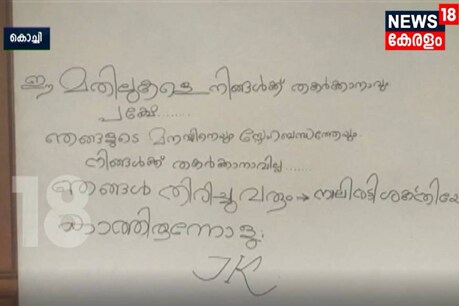 കൊച്ചി
NEWS 18
കേരളം
ഈ മതിലുകളെ നിങ്ങൾക്ക് തകർക്കാനാവും
പക്ഷേ........
ഞങ്ങളുടെ മനസിനെയും സ്നേഹബന്ധത്തേയും
നിങ്ങൾക്ക് തകർക്കാനാവില്ല......
ഞങ്ങൾ തിരിച്ചു വരും → നാലിരട്ടി ശക്തിയോടെ
കാത്തിരുന്നോളു.
JK
18